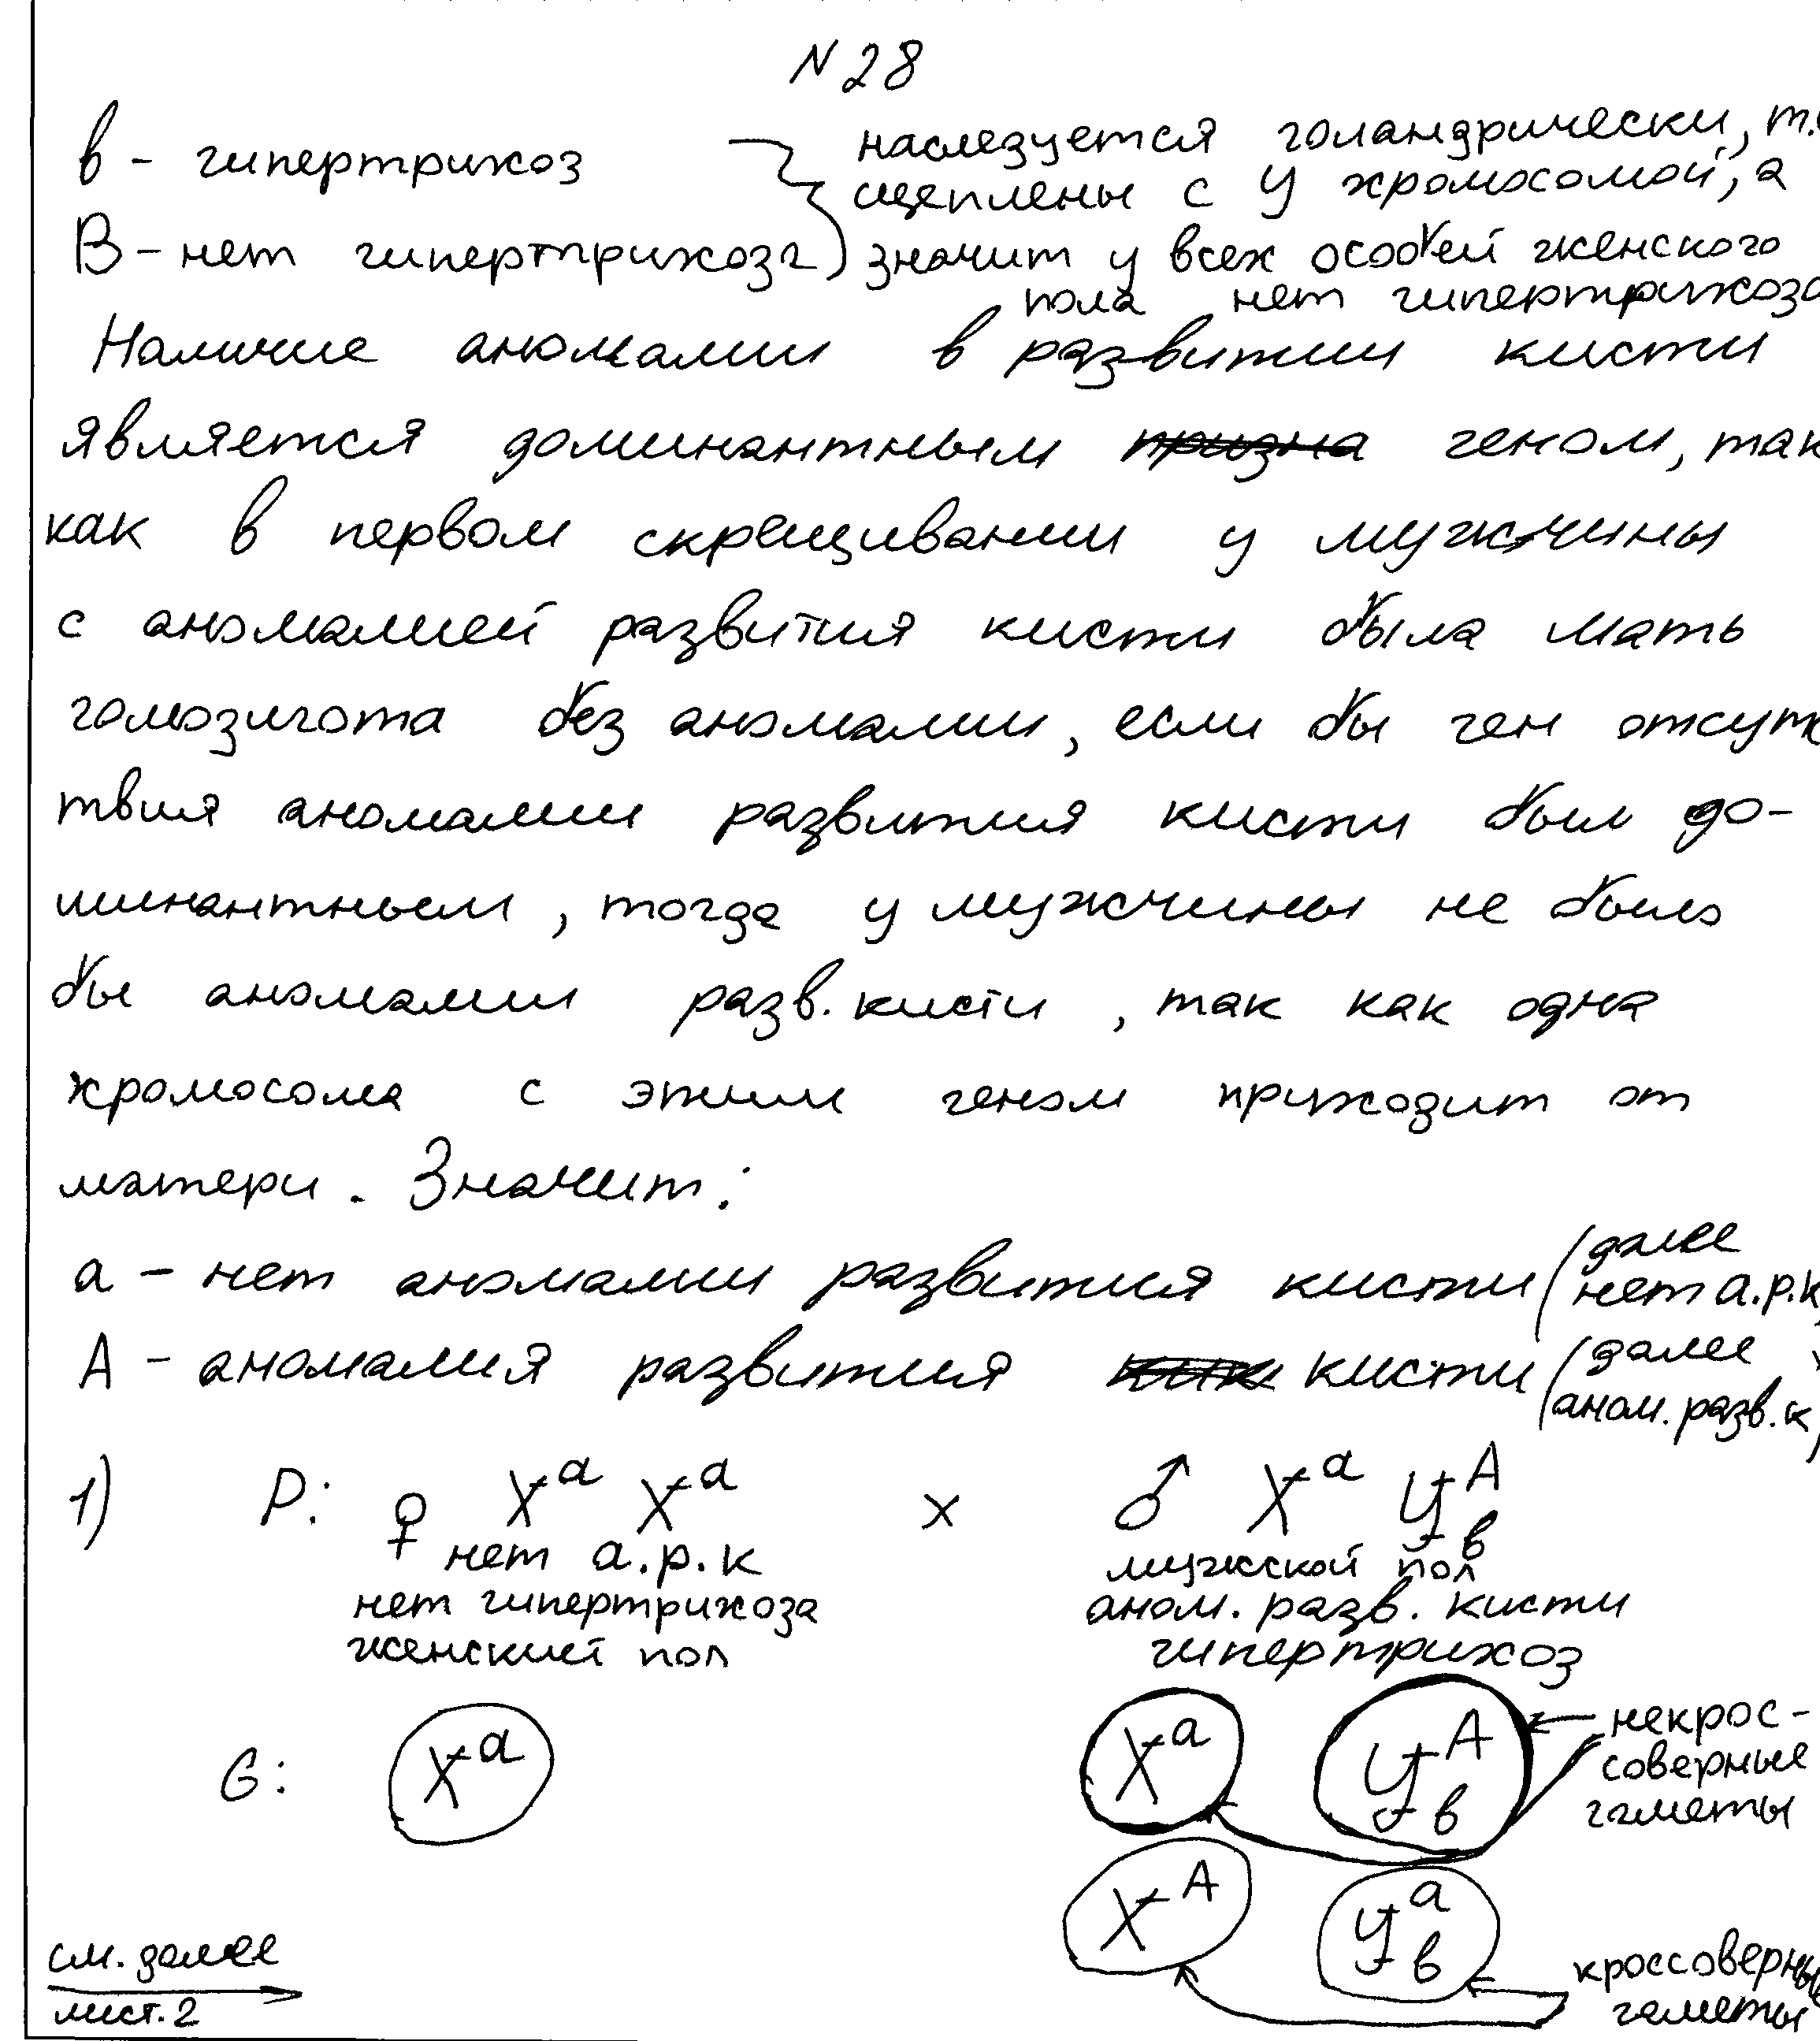 N 28
в - гипертрихоз
наследуется голандрически, т.
сцеплены с У хромосомой, а
В - нет гипертрихоза
значит у всех особей женского
пола нет гипертрихоза
Наличие аномалии в развитии кисти
является доминантным призна геном, так
как в первом скрещивании у мужчины
с аномалией развития кисти была мать
гомозигота без аномалии, если бы ген отсут
твия аномалии развития кисти был до-
минантным, тогда у мужчины не было
бы аномалии разв. кисти, так как одна
хромосома с этим геном приходит от
матери. Значит:
а - нет аномалии развития кисти (далее
нет а.р.к)
А - аномалия развития кисти (далее
аном. разв. к)
1) P: ♀ Xᵃ Xᵃ x ♂ Xᵃ Yᴬв
нет а.р.к
нет гипертрихоза
женский пол
мужской пол
аном. разв. кисти
гипертрихоз
G: Xᵃ Xᵃ Yᴬв
некрос-
соверные
гаметы
Xᴬ Yᵃв
кроссоверные
гаметы
см. далее
лист. 2